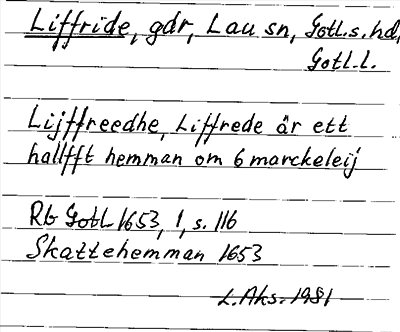 Liffride, gdr, Lau sn, Gotl.s.hd,
Gotl.l.
Lijffreedhe, Liffrede är ett
hallfft hemman om 6 marckeleij
Rb Gotl 1653, 1, s. 116
Skattehemman 1653
L. Aks. 1981